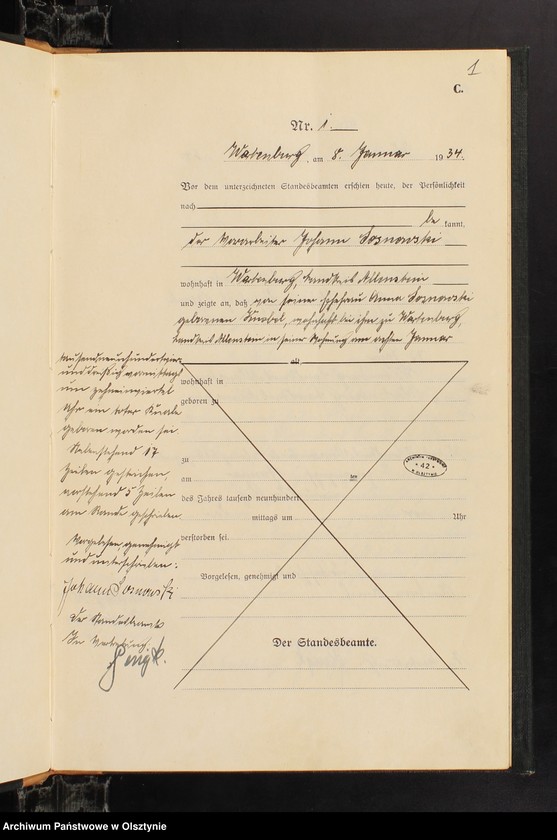 1
C.
Nr. 1.
Wartenburg, am 8. Januar 1934.
Vor dem unterzeichneten Standesbeamten erschien heute, der Persönlichkeit
nach
be kannt,
der Vorarbeiter Johann Sosnowski
wohnhaft in Wartenburg, Landkreis Allenstein
und zeigte an, daß von seiner Ehefrau Anna Sosnowski
geborenen Knobel, wohnhaft bei ihm zu Wartenburg,
Landkreis Allenstein in seiner Wohnung am achten Januar
tausendneunhundertvier-
unddreißig vormittags
um zehneinviertel
Uhr ein toter Knabe
geboren worden sei.
Nebenstehend 17
Zeilen gestrichen,
vorstehend 5 Zeilen
am Rande geschrieben.
Vorgelesen, genehmigt
und unterschrieben:
Johann Sosnowski
Der Standesbeamte
In Vertretung.
alt
wohnhaft in
geboren zu
zu
am ten
des Jahres tausend neunhundert
mittags um Uhr
verstorben sei.
Vorgelesen, genehmigt und
Der Standesbeamte.
42
Archiwum Państwowe w Olsztynie